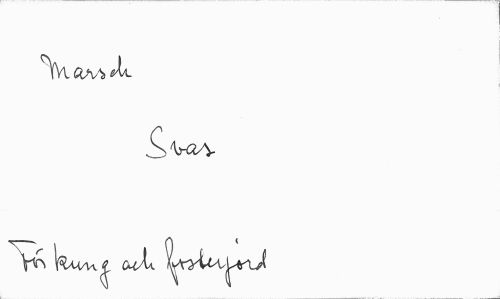 Marsch
Svas
För kung och fosterjord